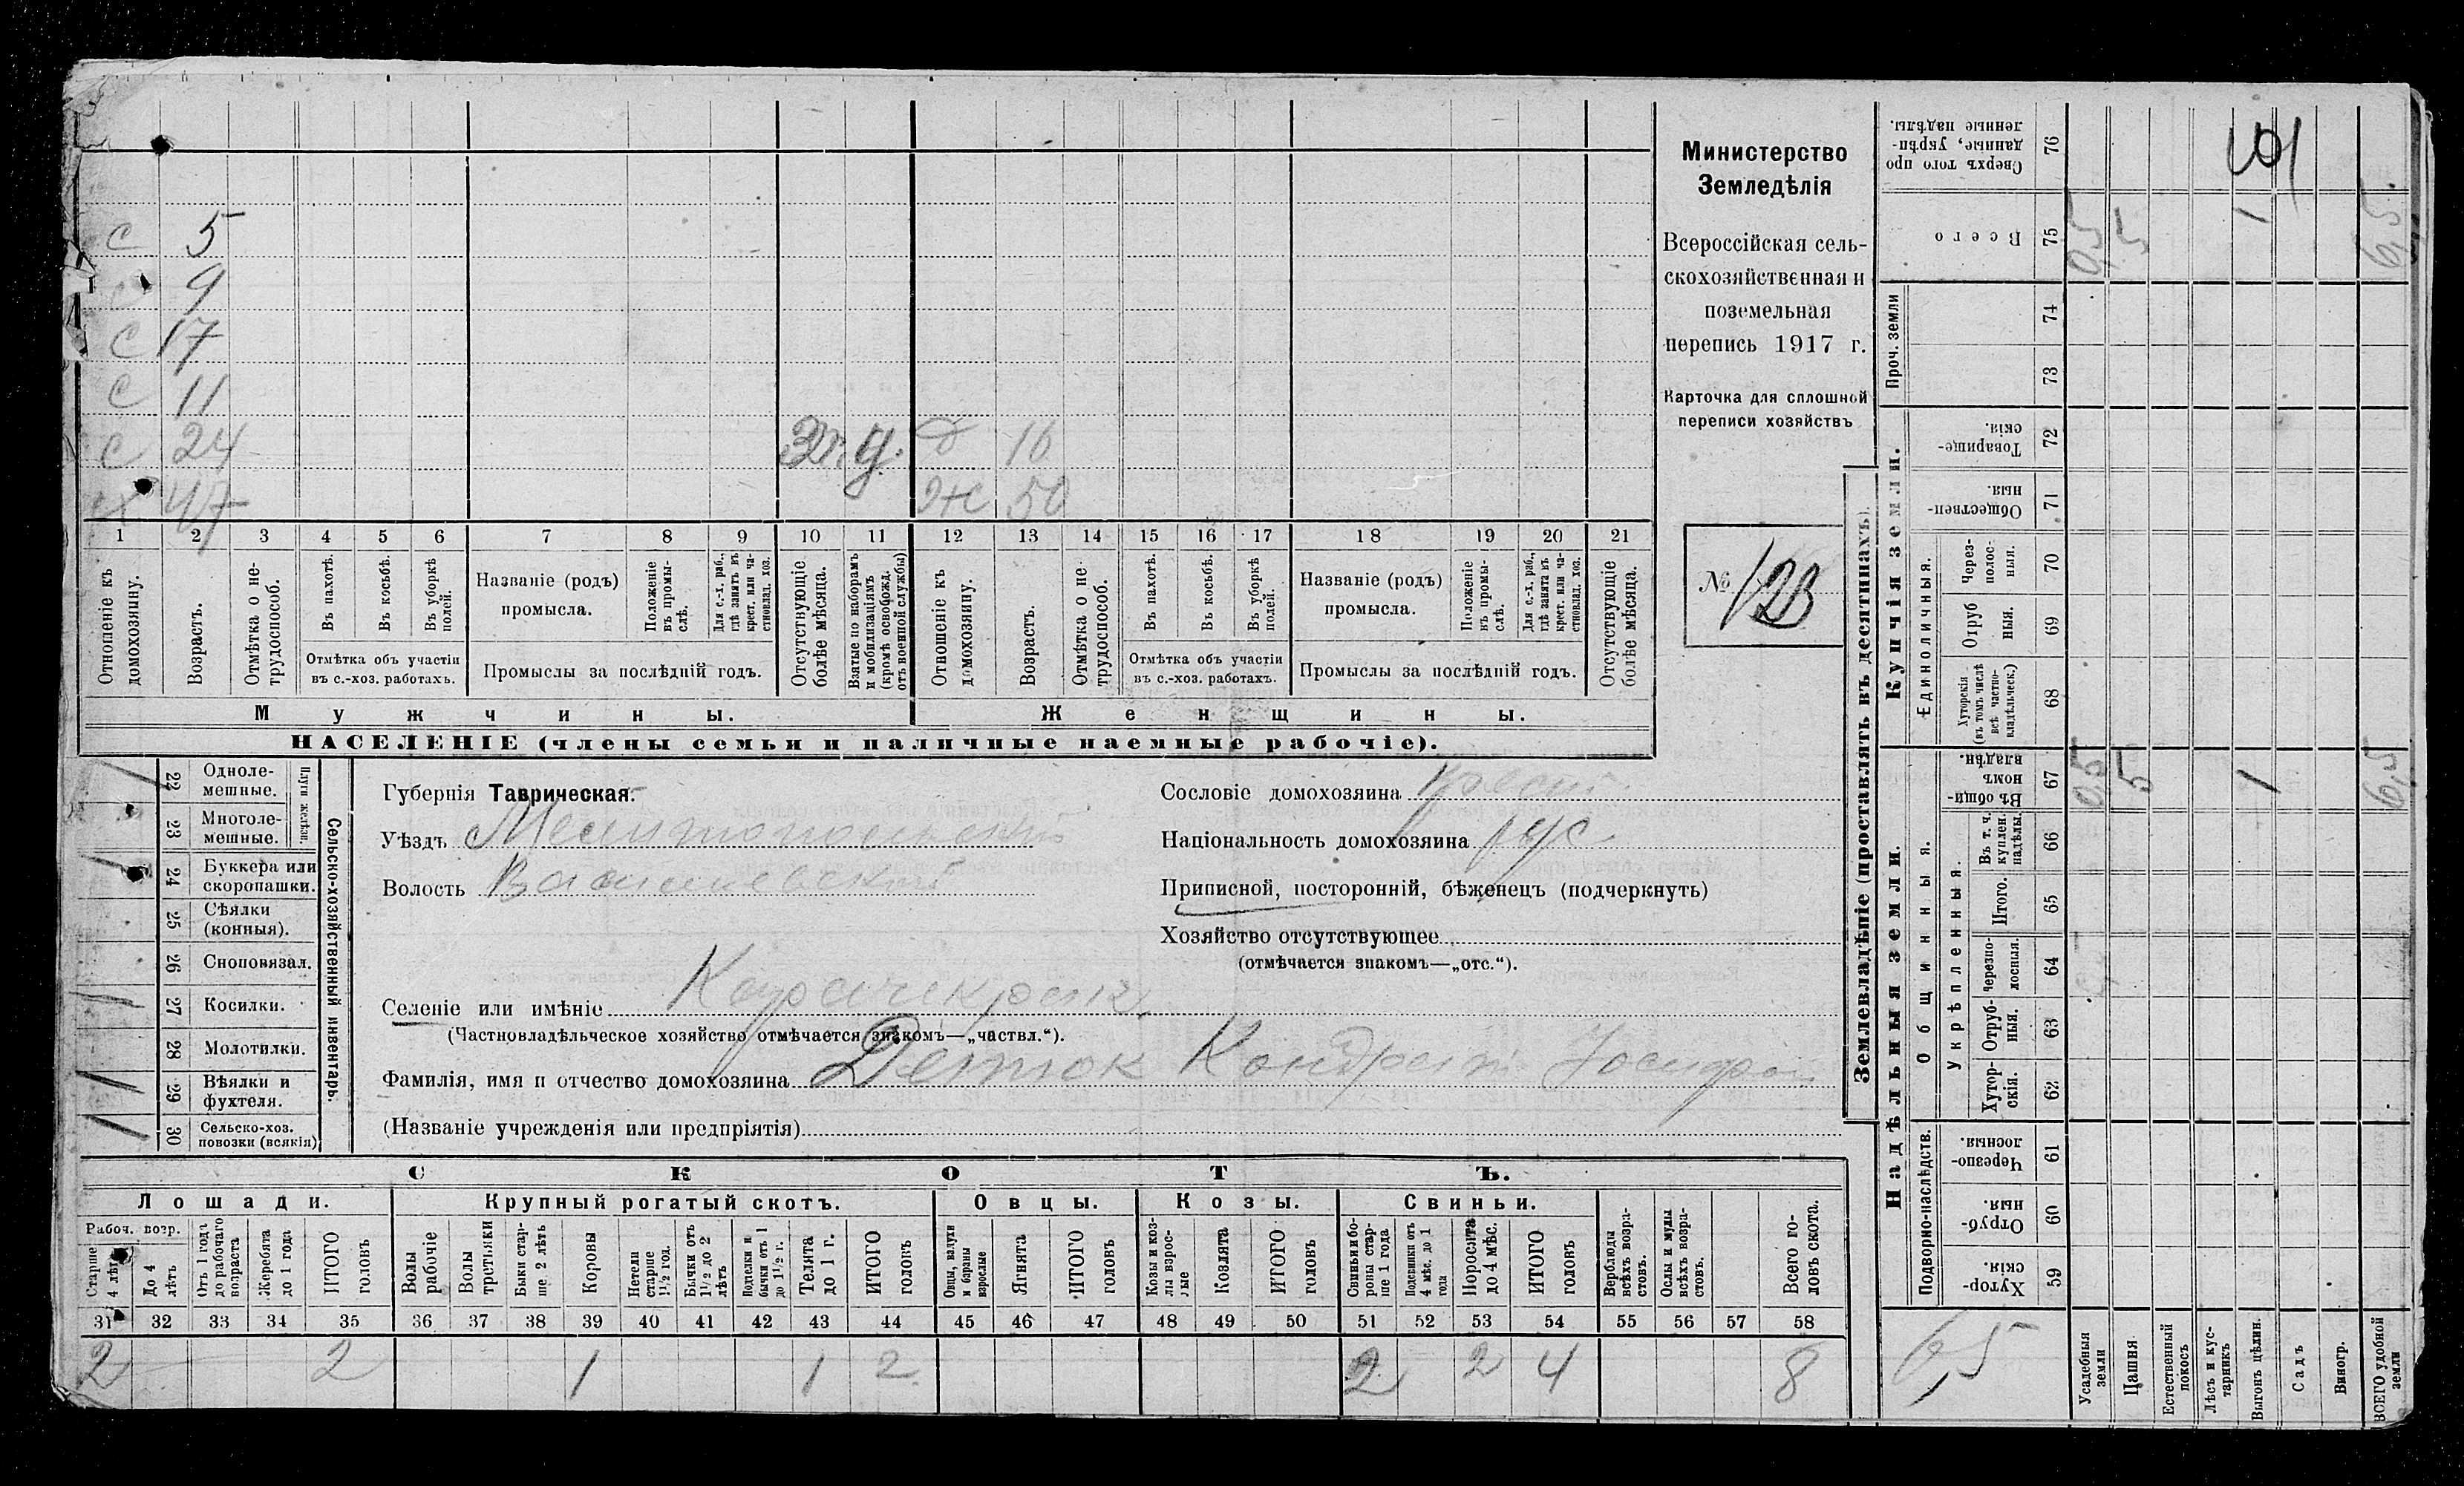 Министерство
Земледѣлія
Всероссійская сель-
скохозяйственная и
поземельная
перепись 1917 г.
Карточка для сплошной
переписи хозяйствъ
№ 123
с 5
с 9
с 17
с 11
с 24 д. 16
х 47 ж 50
1 2 3 4 5 6 7 8 9 10 11 12 13 14 15 16 17 18 19 20 21
Отношеніе къ домохозяину.
Возрастъ.
Отмѣтка о не-трудоспособ.
Въ пахотѣ.
Въ косьбѣ.
Въ уборкѣ полей.
Отмѣтка объ участіи
въ с.-хоз. работахъ.
Названіе (родъ)
промысла.
Положеніе въ промы-слѣ.
Для с.-х. раб., гдѣ занятъ въ крест. или ча-стновлад. хоз.
Промыслы за послѣдній годъ.
Отсутствующіе болѣе мѣсяца.
Взятые по наборамъ и мобилизаціямъ (кромѣ освобожд. отъ военной службы)
Отношеніе къ домохозяину.
Возрастъ.
Отмѣтка о не-трудоспособ.
Въ пахотѣ.
Въ косьбѣ.
Въ уборкѣ полей.
Отмѣтка объ участіи
въ с.-хоз. работахъ.
Названіе (родъ)
промысла.
Положеніе въ промы-слѣ.
Для с.-х. раб., гдѣ занята въ крест. или ча-стновлад. хоз.
Промыслы за послѣдній годъ.
Отсутствующіе болѣе мѣсяца.
Мужчины.
Женщины.
НАСЕЛЕНІЕ (члены семьи и наличные наемные рабочіе).
22 Одноле-мешные.
23 Многоле-мешные.
Плуги желѣзн.
24 Буккера или скоропашки.
25 Сѣялки (конныя).
26 Сноповязал.
27 Косилки.
28 Молотилки.
29 Вѣялки и фухтеля.
30 Сельско-хоз. повозки (всякія)
Сельско-хозяйственный инвентарь.
Губернія Таврическая.
Уѣздъ Мелитопольскій
Волость Васильевской
Селеніе или имѣніе Карачикракъ
(Частновладѣльческое хозяйство отмѣчается знакомъ—„частвл.“).
Фамилія, имя и отчество домохозяина Деток Кондрат Iосифов
(Названіе учрежденія или предпріятія)
Сословіе домохозяина крест.
Національность домохозяина рус.
Приписной, посторонній, бѣженецъ (подчеркнуть)
Хозяйство отсутствующее
(отмѣчается знакомъ—„отс.“).
СКОТЪ.
Лошади. Крупный рогатый скотъ. Овцы. Козы. Свиньи.
Рабоч. возр.
Старше 4 лѣтъ
До 4 лѣтъ
Отъ 1 года до рабочаго возраста
Жеребята до 1 года
ИТОГО головъ
Волы рабочіе
Волы третьяки
Быки стар-ше 2 лѣтъ
Коровы
Нетели старше 1½ год.
Бычки отъ 1½ до 2 лѣтъ
Подтелки и бычки отъ 1 до 1½ г.
Телята до 1 г.
ИТОГО головъ
Овцы, валухи и бараны взрослые
Ягнята
ИТОГО головъ
Козы и коз-лы взрос-лые
Козлята
ИТОГО головъ
Свиньи и бо-ровы стар-ше 1 года
Подсвинки отъ 4 мѣс. до 1 года
Поросята до 4 мѣс.
ИТОГО головъ
Верблюды всѣхъ возра-стовъ.
Ослы и мулы всѣхъ возра-стовъ.
Всего го-ловъ скота.
31 32 33 34 35 36 37 38 39 40 41 42 43 44 45 46 47 48 49 50 51 52 53 54 55 56 57 58
2 2 1 1 2 2 2 4 8
Землевладѣніе (проставлять въ десятинахъ).
Надѣльныя земли.
Купчія земли.
Проч. земли
Подворно-наслѣдств.
Общинныя.
Укрѣпленныя.
Единоличныя.
Сверхъ того про-данные, укрѣп-ленные надѣлы. 76
Всего 75
74
73
Товарище-скія. 72
Обществен-ныя. 71
Через-полос-ныя. 70
Отруб-ныя. 69
Хуторскія (въ томъ числѣ всѣ частно-владѣльческ.) 68
Въ общи-номъ владѣн. 67
Въ т. ч. куплен. надѣлы. 66
Итого. 65
Черезпо-лосныя. 64
Отруб-ныя. 63
Хутор-скія. 62
Черезпо-лосныя. 61
Отруб-ныя. 60
Хутор-скія. 59
0,5 5 1 6,5
0,5 5 1 6,5
6,5
Усадебныя земли
Пашня
Естественный покосъ
Лѣсъ и кус-тарникъ
Выгонъ цѣлин.
Садъ
Виногр.
ВСЕГО удобной земли